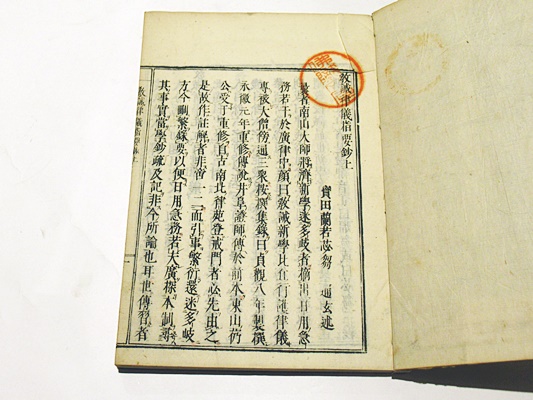 教誡律儀指要鈔上
寶田蘭若苾芻 通玄述
昔者南山大師將濟新學迷多岐者摘出日用急
務若干於廣律中顏曰教誡新學比丘行護律儀
專被大僧傍通三衆按撰集錄曰貞觀八年製撰
永徽元年重修傳說井阜證師傳於前本東山仍
公受于重修自古南北律苑登戒門者必先由之
是故作註解者非啻一二而引事繁衍還迷多岐
方今刪繁錄要以便日用急務若夫廣探本制尋
其事實需學鈔疏及記非今所論也耳世傳習者
教誡律儀指要鈔上